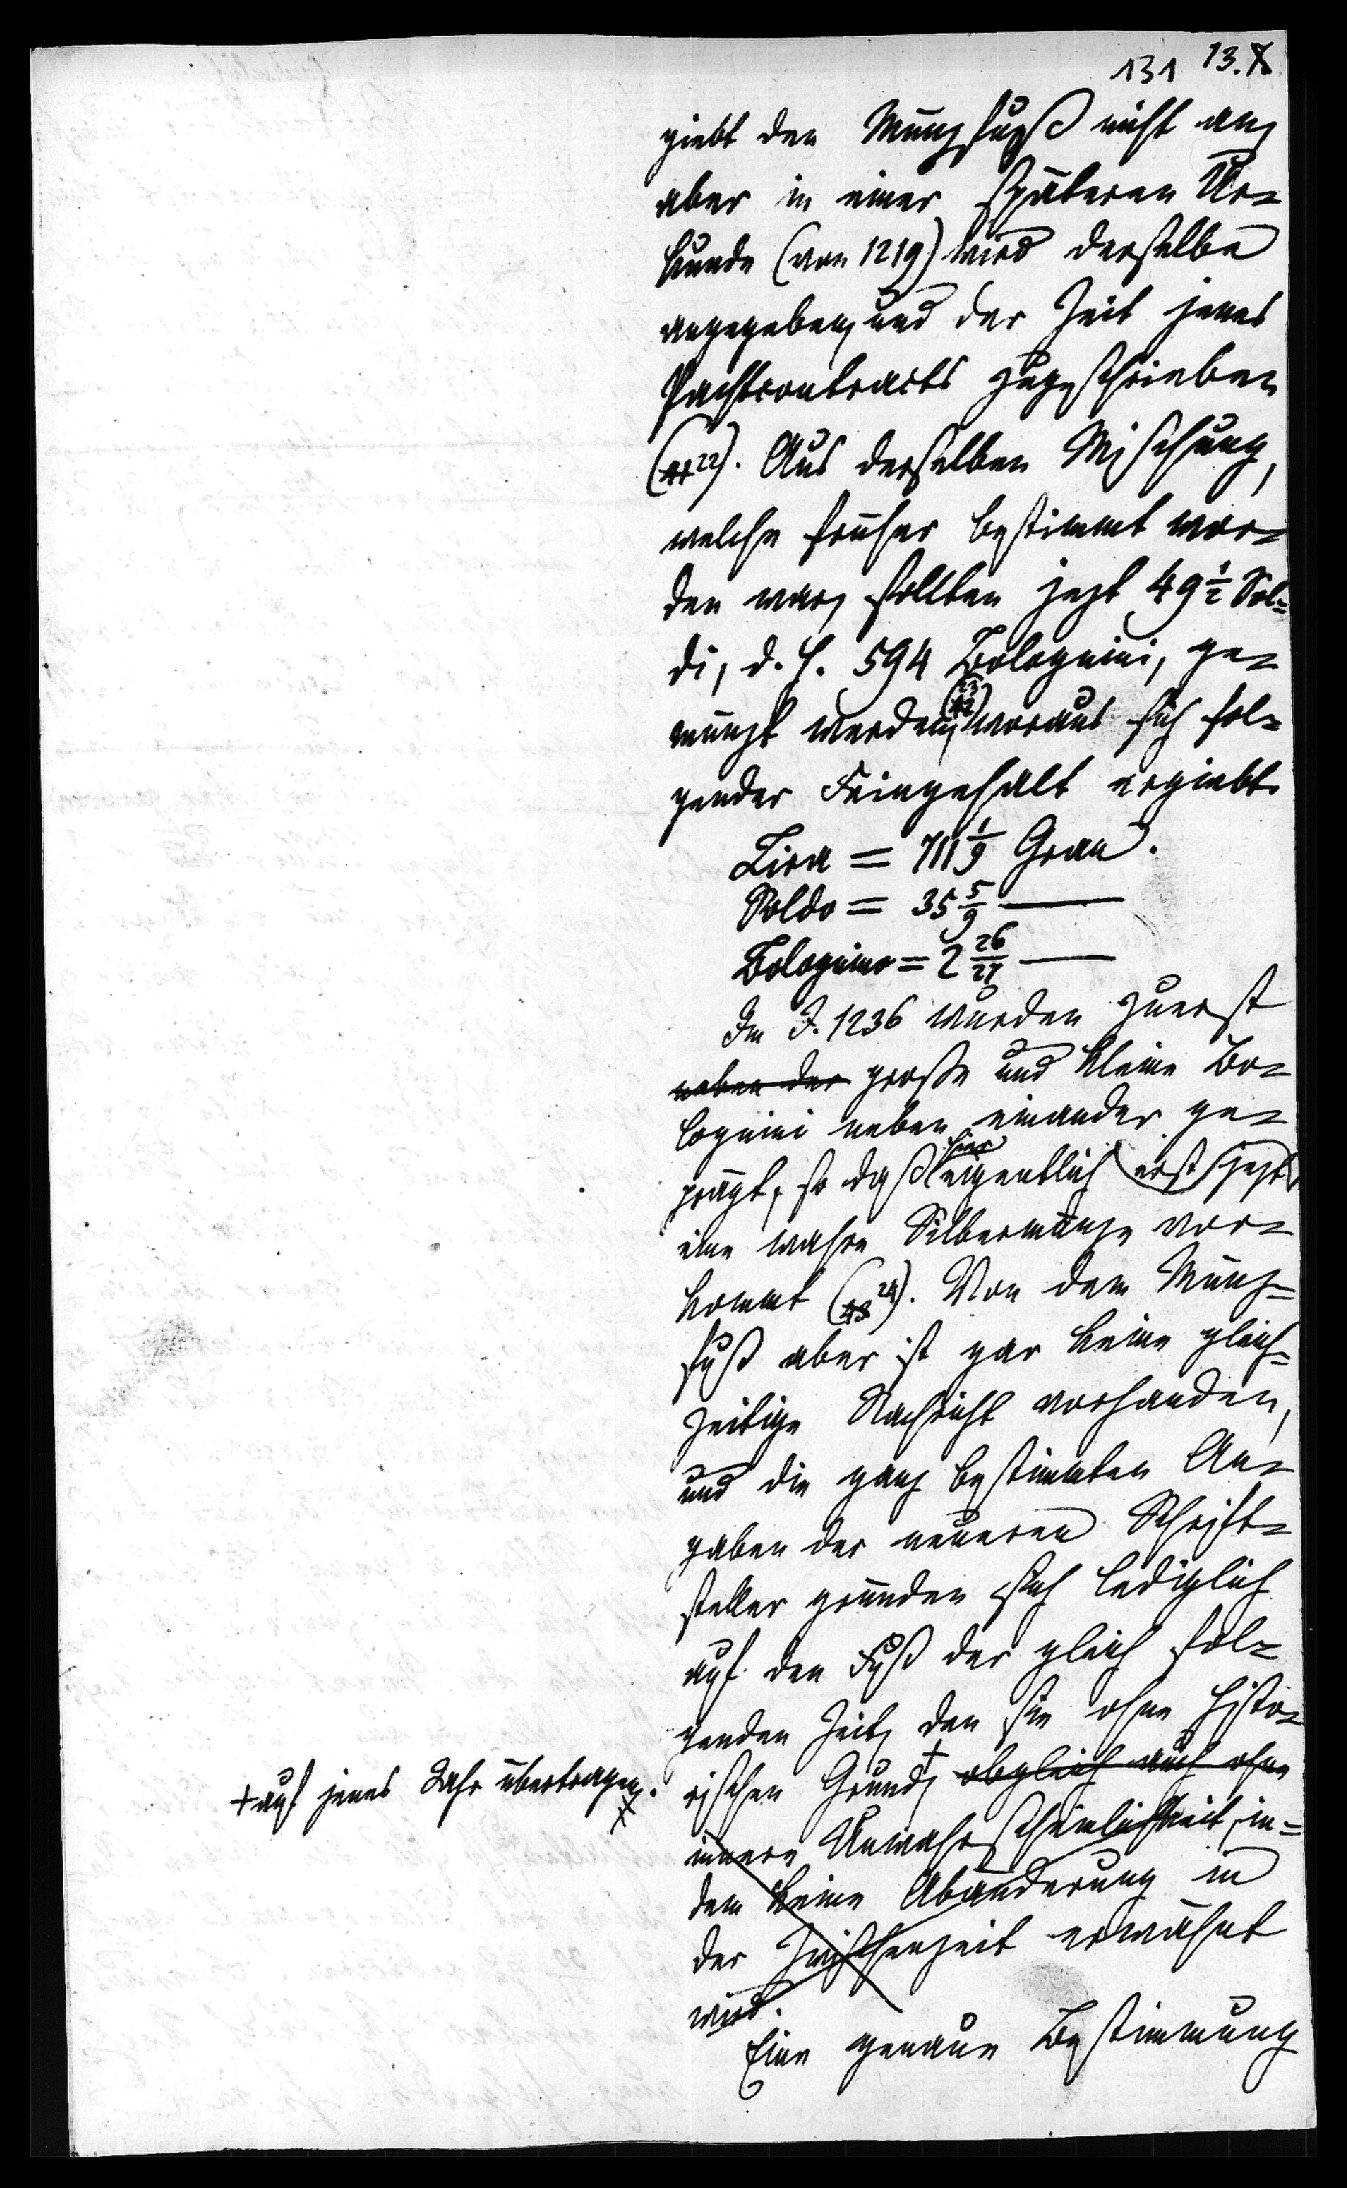 131 13.
giebt den Münzfuß nicht an,
aber in einer späteren Ur-
kunde (von 1219) wird derselbe
angegeben, und der Zeit jenes
Pachtcontracts zugeschrieben
(22). Aus derselben Mischung,
welche früher bestimmt wor-
den war, sollten jezt 49 1/2 Sol-
di, d. h. 594 Bolognini, ge-
münzt werden, (23) woraus sich fol-
gender Feingehalt ergiebt.
Lira = 711 1/9 Gran.
Soldo = 35 5/9 —
Bolognino = 2 26/27 —
Im J. 1236 wurden zuerst
neben der große und kleine Bo-
lognini neben einander ge-
prägt, so daß hier eigentlich erst jezt
eine wahre Silbermünze vor-
kommt (24). Von dem Münz-
fuß aber ist gar keine gleich-
zeitige Nachricht vorhanden,
und die ganz bestimmten An-
gaben der neueren Schrift-
steller gründen sich lediglich
auf den Fuß der gleich fol-
genden Zeit, den sie ohne histo-
rischen Grund, + obgleich auch ohne
+ auf jenes Jahr übertragen.
innere Unwahrscheinlichkeit, in-
dem keine Abänderung in
der Zwischenzeit erwähnt
wird.
Eine genaue Bestimmung